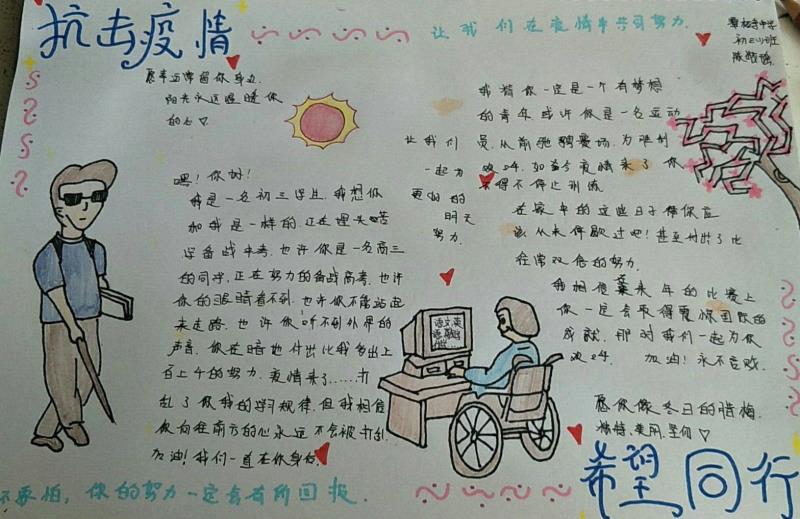 抗击疫情
让我们在疫情中共同努力.
初三(1)班
愿幸运常留你身边.
阳光永远温暖你
的心♡
嘿！你好！
我是一名初三学生.我想你
和我是一样的.正在埋头苦
学备战中考.也许你是一名高三
的同学,正在努力的备战高考.也许
你的眼睛看不到.也许你不能站起
来走路.也许你听不到外界的
声音.你在暗地付出比我多出上
百上千的努力.疫情来了......打
乱了你我的学习规律.但我相信
你向往南方的心永远不会被打乱.
加油！我们一直在你身后.
让我们
一起为
更好的
明天
努力.
我猜你一定是一个有梦想
的青年或许你是一名运动
员.从前驰骋赛场.为胜利
欢呼.如今疫情来了你
不得不停止训练
在家中的这些日子你应
该从未停歇过吧！甚至付出了比
往常双倍的努力.
我相信来年的比赛上
你一定会取得
成就.那时我们一起为你
欢呼. 加油！永不言败.
愿你像冬日的腊梅.
独特、美丽、坚韧♡
不要怕，你的努力一定会有所回报.
希望同行